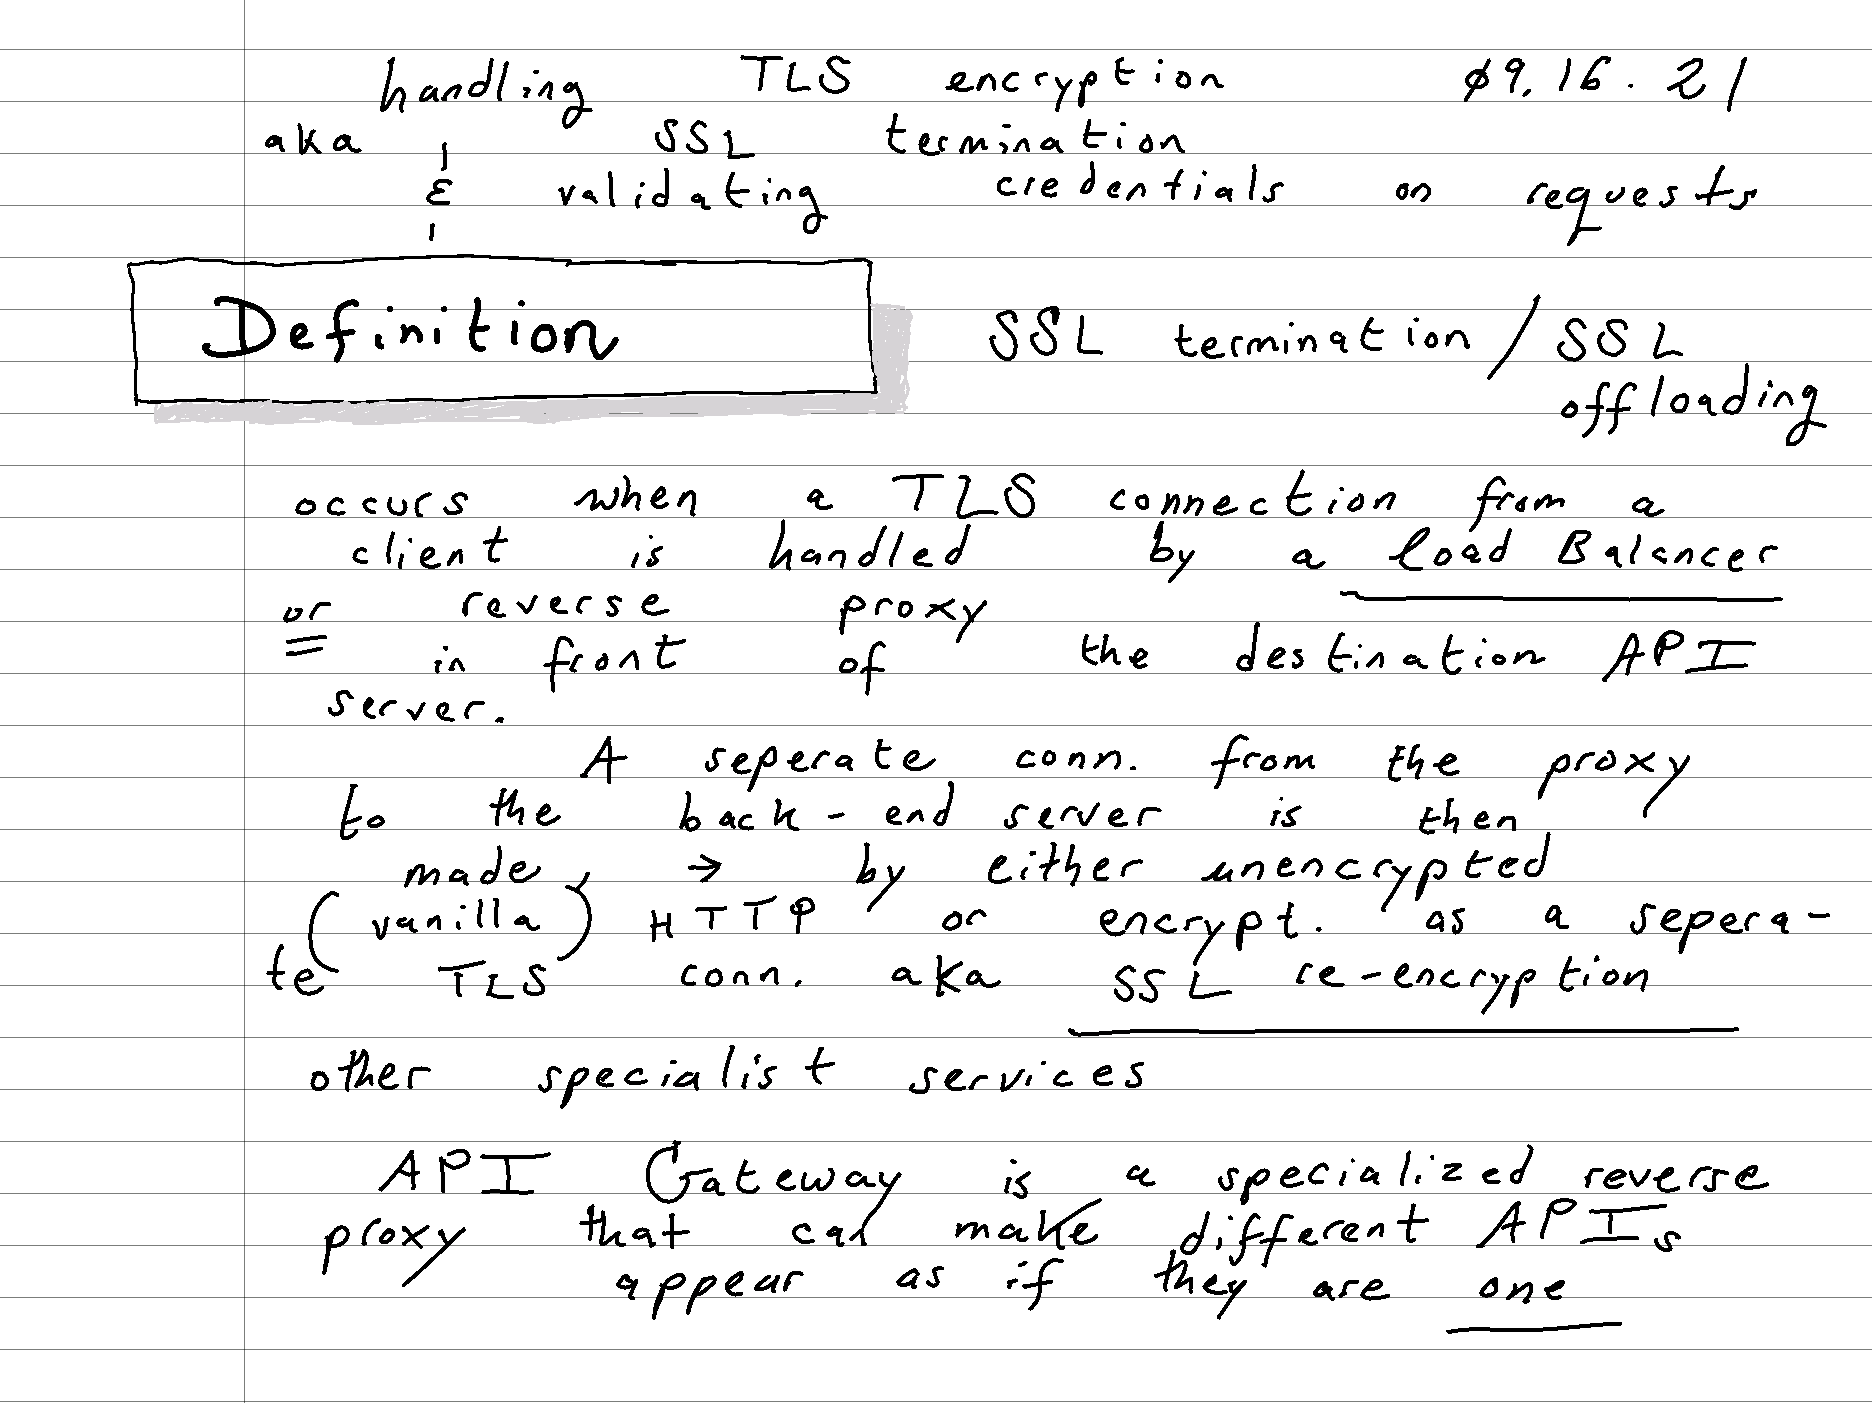 handling TLS encryption ø9.16.21
aka SSL termination
& validating credentials on requests
Definition SSL termination / SSL
offloading
occurs when a TLS connection from a
client is handled by a load Balancer
or reverse proxy
in front of the destination API
server.
A seperate conn. from the proxy
to the back-end server is then
made, → by either unencrypted
(vanilla) HTTP or encrypt. as a sepera-
te TLS conn. aka SSL re-encryption
other specialist services
API Gateway is a specialized reverse
proxy that can make different APIs
appear as if they are one